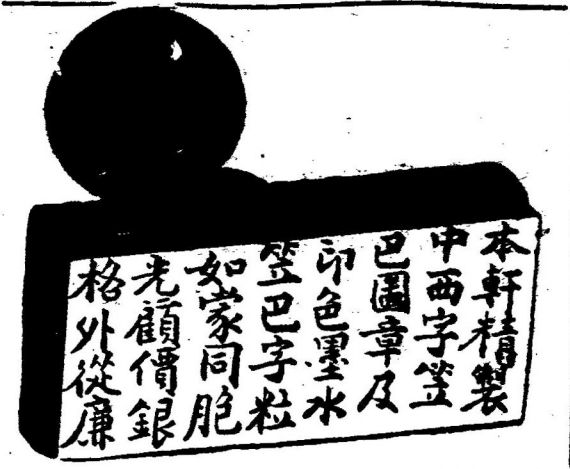 本軒精製
中西字笠
巴圖章及
印色墨水
笠巴字粒
如蒙同胞
光顧價銀
格外從廉